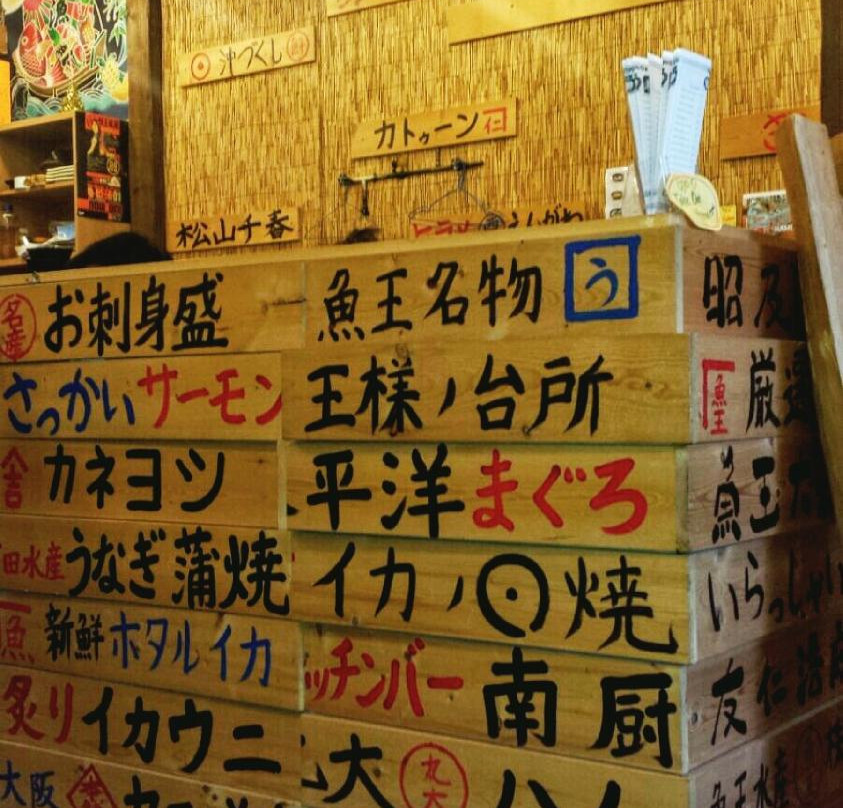 沖づくし
カトゥーン 仁
松山千春
ヒラメ えんがわ
名産 お刺身盛
魚王名物 う
さっかいサーモン
王様ノ台所
魚王 厳選
カネヨツ
平洋まぐろ
田水産うなぎ蒲焼
イカノ 焼
いらっしゃい
魚 新鮮ホタルイカ
ッチンバー 南 厨
友仁
炙りイカウニ
大 丸大
大阪